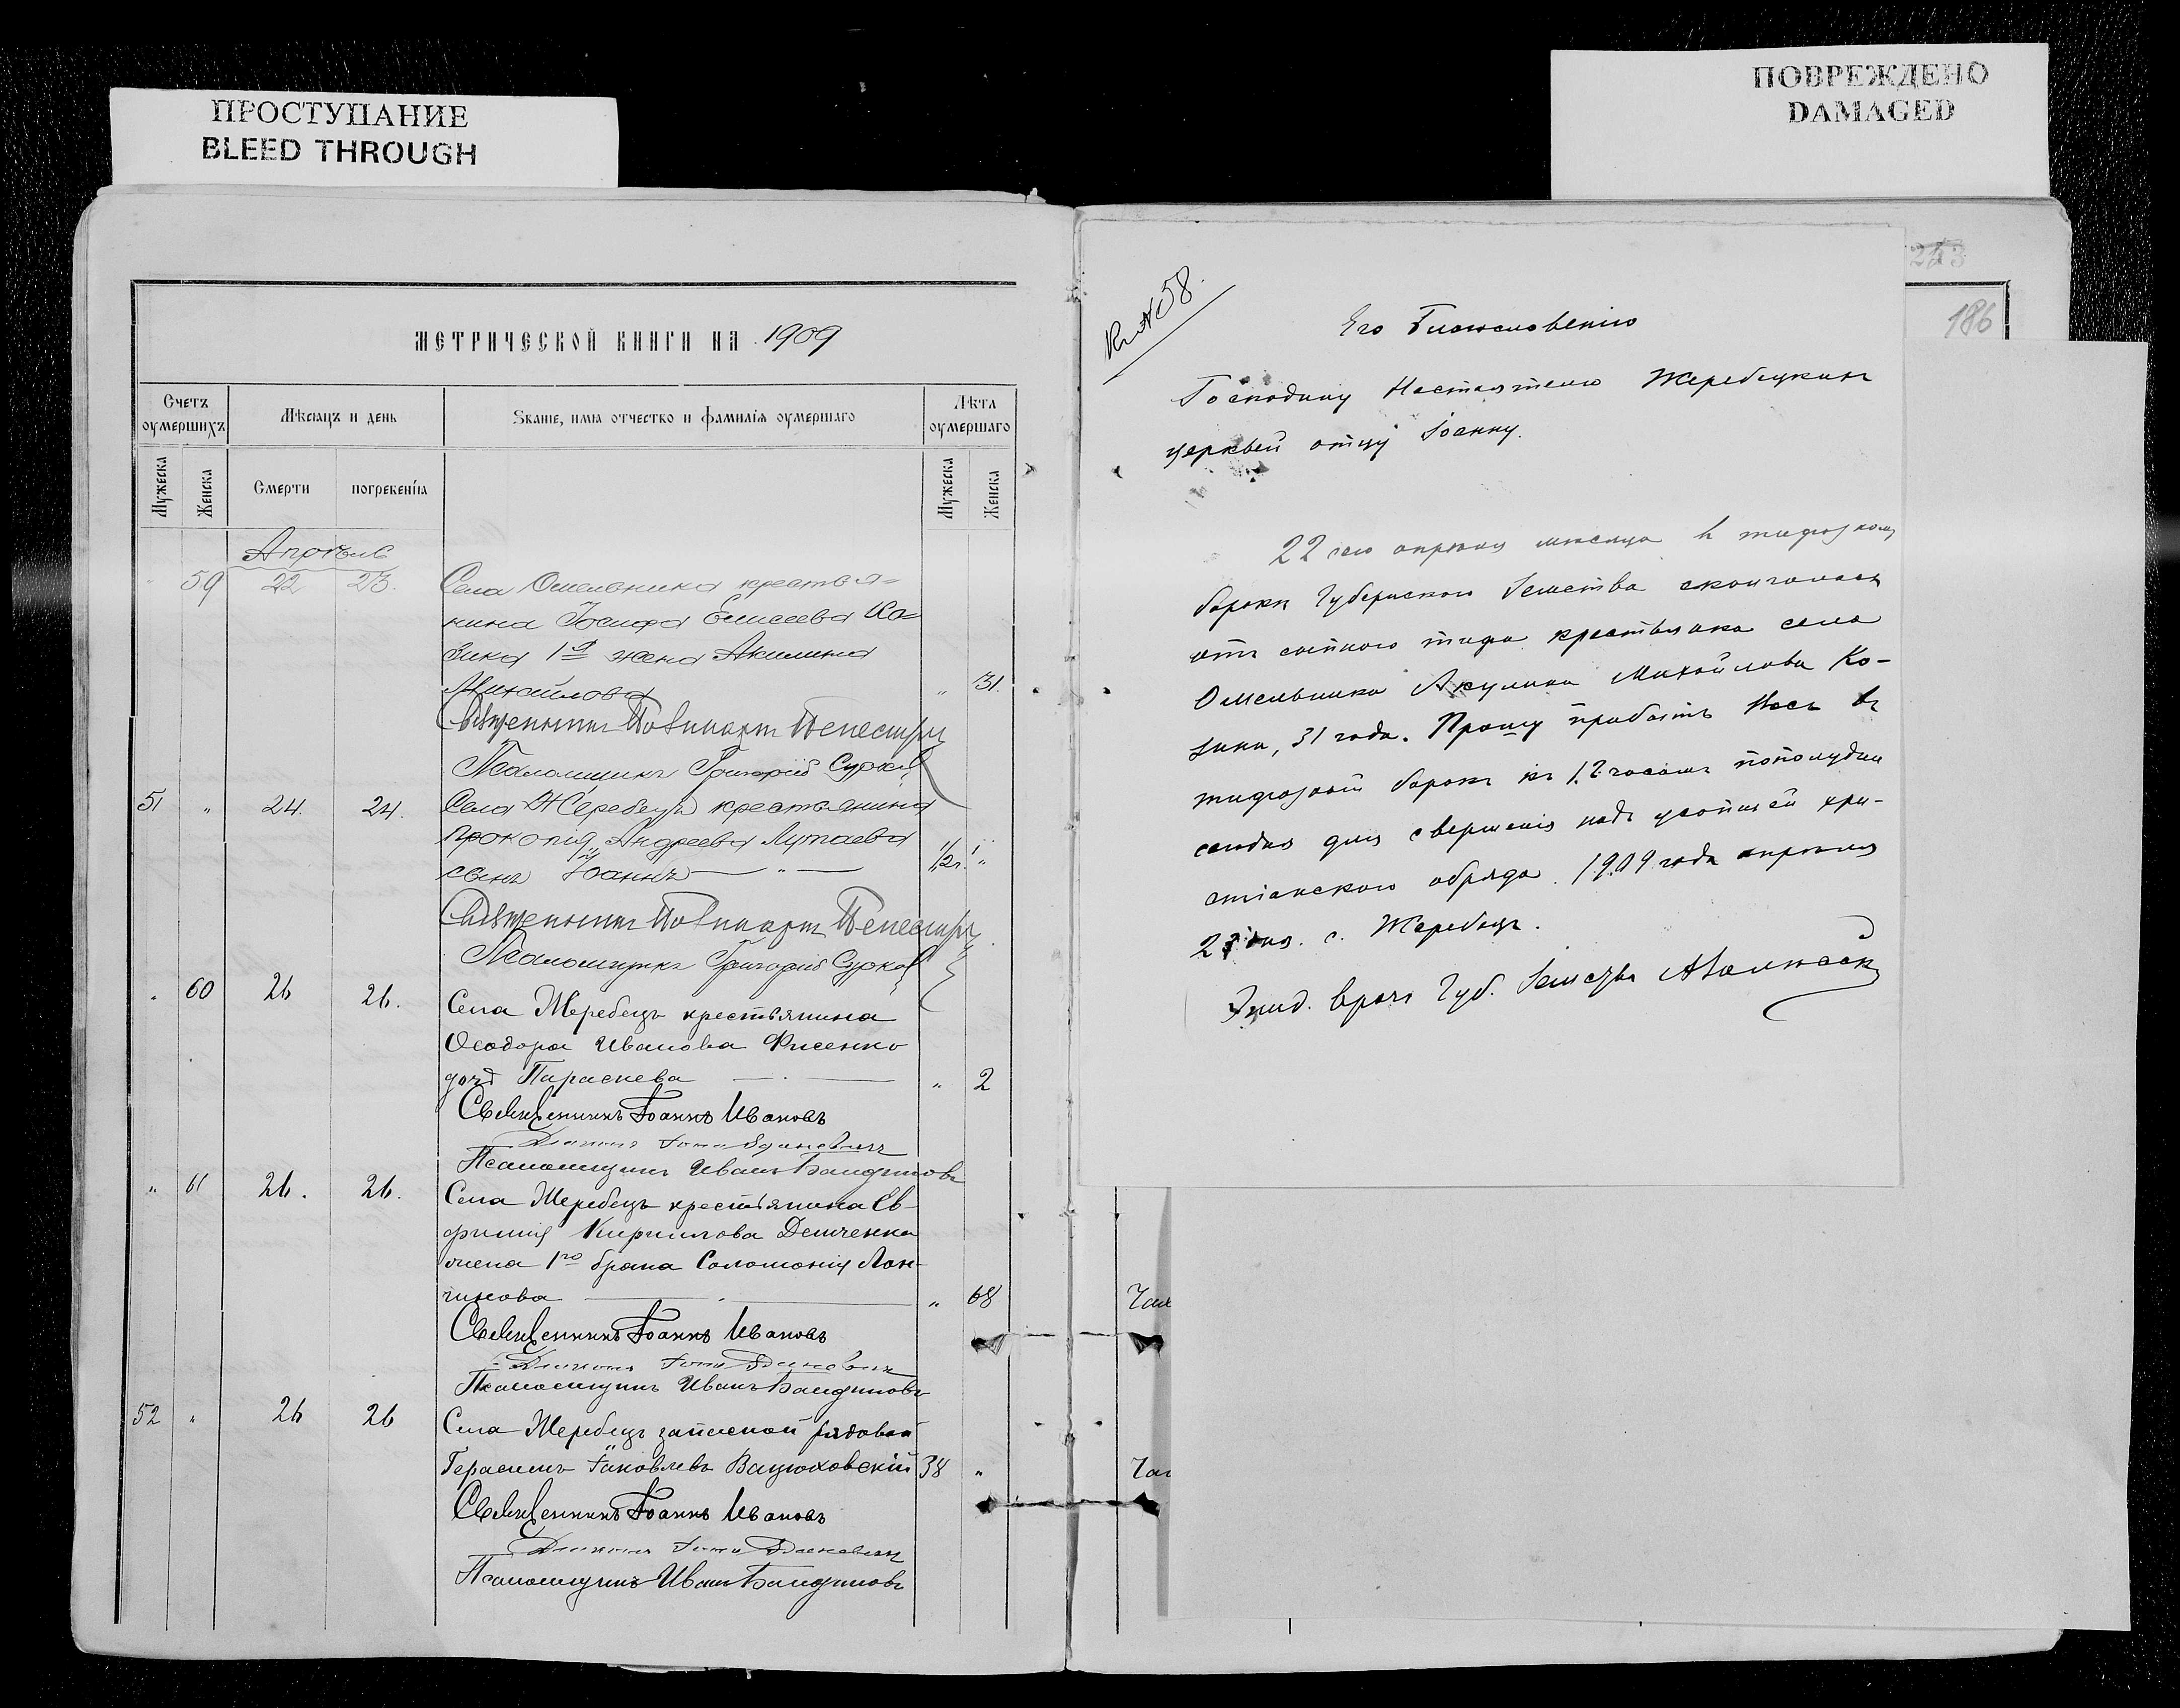 ПРОСТУПАНИЕ
BLEED THROUGH
ПОВРЕЖДЕНО
DAMAGED
МЕТРИЧЕСКОЙ КНИГИ НА 1909
Счетъ оумершихъ
Мѣсяцъ и день
Званіе, имя отчество и фамилія оумершаго
Лѣта оумершаго
Мужеска
Женска
Смерти
погребенія
Мужеска
Женска
Апрѣль
" 59 22 23. Села Омельника крестья-
нина Іосифа Елисеева Ко-
зика 1я жена Акилина
Михайлова " 31.
Псаломщикъ Григорій Сурков
51 " 24. 24. Села Жеребецъ крестьянина
Прокопія Андреева Лутаева
сынъ Іоаннъ — " — 1/2 г. "
Псаломщикъ Григорій Сурков
" 60 26 26. Села Жеребецъ крестьянина
Ѳеодора Иванова Фисенко
дочь Параскева " 2
Священникъ Іоаннъ Ивановъ
Діаконъ
Псаломщикъ Иванъ Бандиновъ
" 61 26. 26. Села Жеребецъ крестьянина Ев-
фимія Кириллова Демченка
жена 1го брака Соломонія Лон-
гинова " 68
Священникъ Іоаннъ Ивановъ
Діаконъ
Псаломщикъ Иванъ Бандиновъ
52 " 26 26 Села Жеребецъ запасной рядовой
Герасимъ Іаковлевъ Вацюховскій 38 "
Священникъ Іоаннъ Ивановъ
Діаконъ
Псаломщикъ Иванъ Бандиновъ
186
58.
Его Благословенію
Господину Настоятелю Жеребецкихъ
церквей отцу Іоанну.
22 сего апрѣля мѣсяца в тифозномъ
баракѣ Губернскаго Земства скончалась
отъ сыпного тифа крестьянка села
Омельника Акулина Михайлова Ко-
зика, 31 года. Прошу прибыть Васъ въ
тифозный баракъ къ 12 часамъ пополудни
сегодня для свершенія надъ усопшей хри-
стіанскаго обряда. 1909 года апрѣля
23 дня. с. Жеребецъ.
Эпид. врачъ Губ. Земства